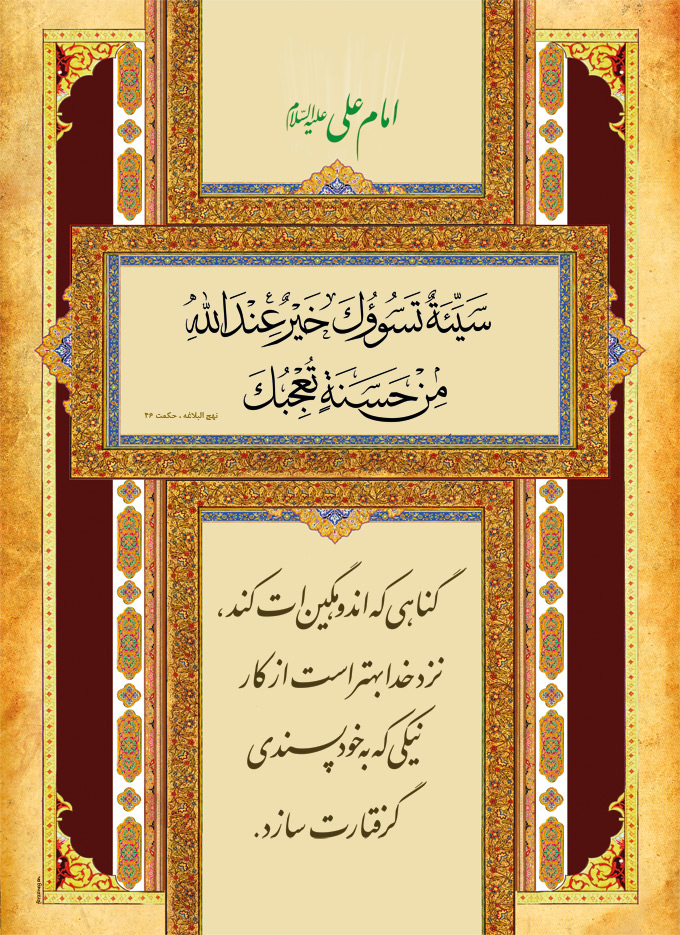 امام علی علیه‌السلام
سَیِّئَةٌ تَسُوؤُكَ خَیْرٌ عِنْدَاللهِ
مِنْ حَسَنَةٍ تُعْجِبُكَ
نهج البلاغه ، حکمت ۴۶
گناهی که اندوهگین‌ات کند،
نزد خدا بهتر است از کار
نیکی که به خودپسندی
گرفتارت سازد.